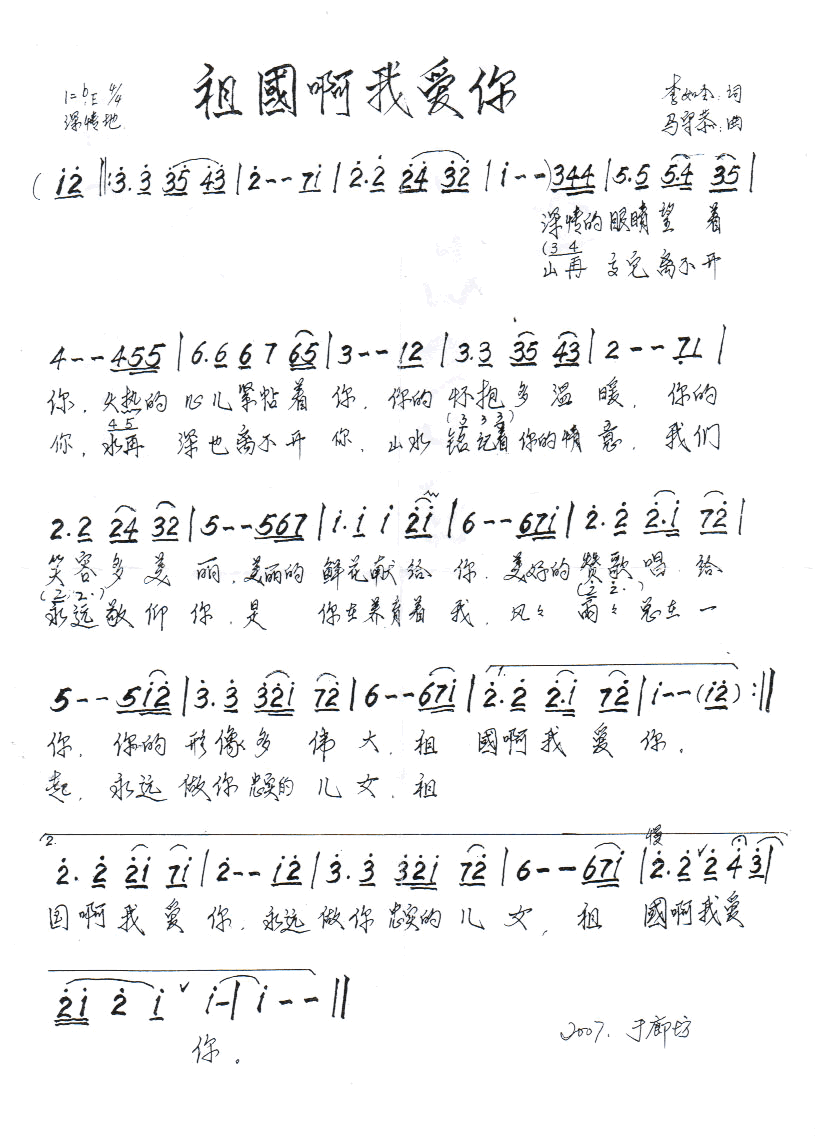 祖國啊我爱你
1=bE 4/4
深情地
李如奎:词
马守恭:曲
(i2 ‖:3.3 35 43|2--71|2.2 24 32|1--)344|5.5 54 35|
深情的眼睛望着
(3 4
山再高它离不开
4--455|6.6 6 7 65|3--12|3.3 35 43|2--71|
你,火热的心儿紧帖着你,你的怀抱多温暖,你的
4 5 (3 3 3)
你,水再深也离不开你,山水铭记着你的情意,我们
2.2 24 32|5--567|i.i i 2i|6--67i|2.2 2.i 72|
笑容多美丽,美丽的鲜花献给你,美好的赞歌唱给
(2 2.) (2 2.)
永远敬仰你,是你在养育着我,风々雨々总在一
5--5i2|3.3 32i 72|6--67i|1. 2.2 2.i 72|i--(i2):‖
你,你的形像多伟大,祖國啊我爱你。
起,永远做你忠实的儿女,祖
2. 慢
2.2 2i 7i|2--i2|3.3 32i 72|6--67i|2.2ˇ2 4 3|
国啊我爱你,永远做你忠实的儿女,祖國啊我爱
2i 2 iˇi-|i--‖
你。
2007.于廊坊